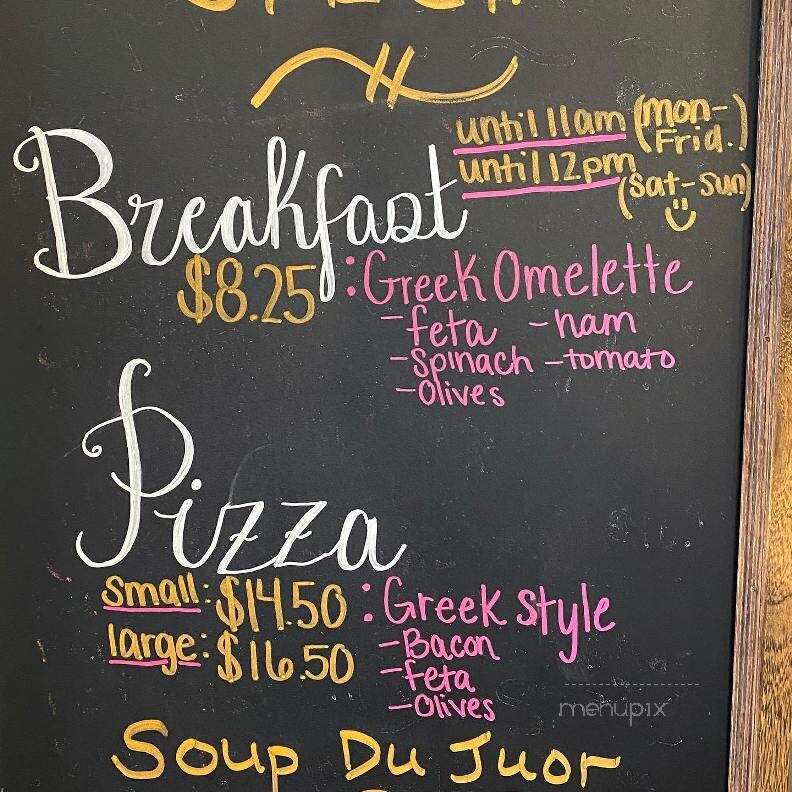 until 11am (mon-Frid.)
until 12pm (sat-sun)
Breakfast
$8.25 : Greek Omelette
-feta -ham
-spinach -tomato
-Olives
Pizza
small: $14.50 : Greek style
large: $16.50 -Bacon
-feta
-Olives
menupix
Soup Du Juor